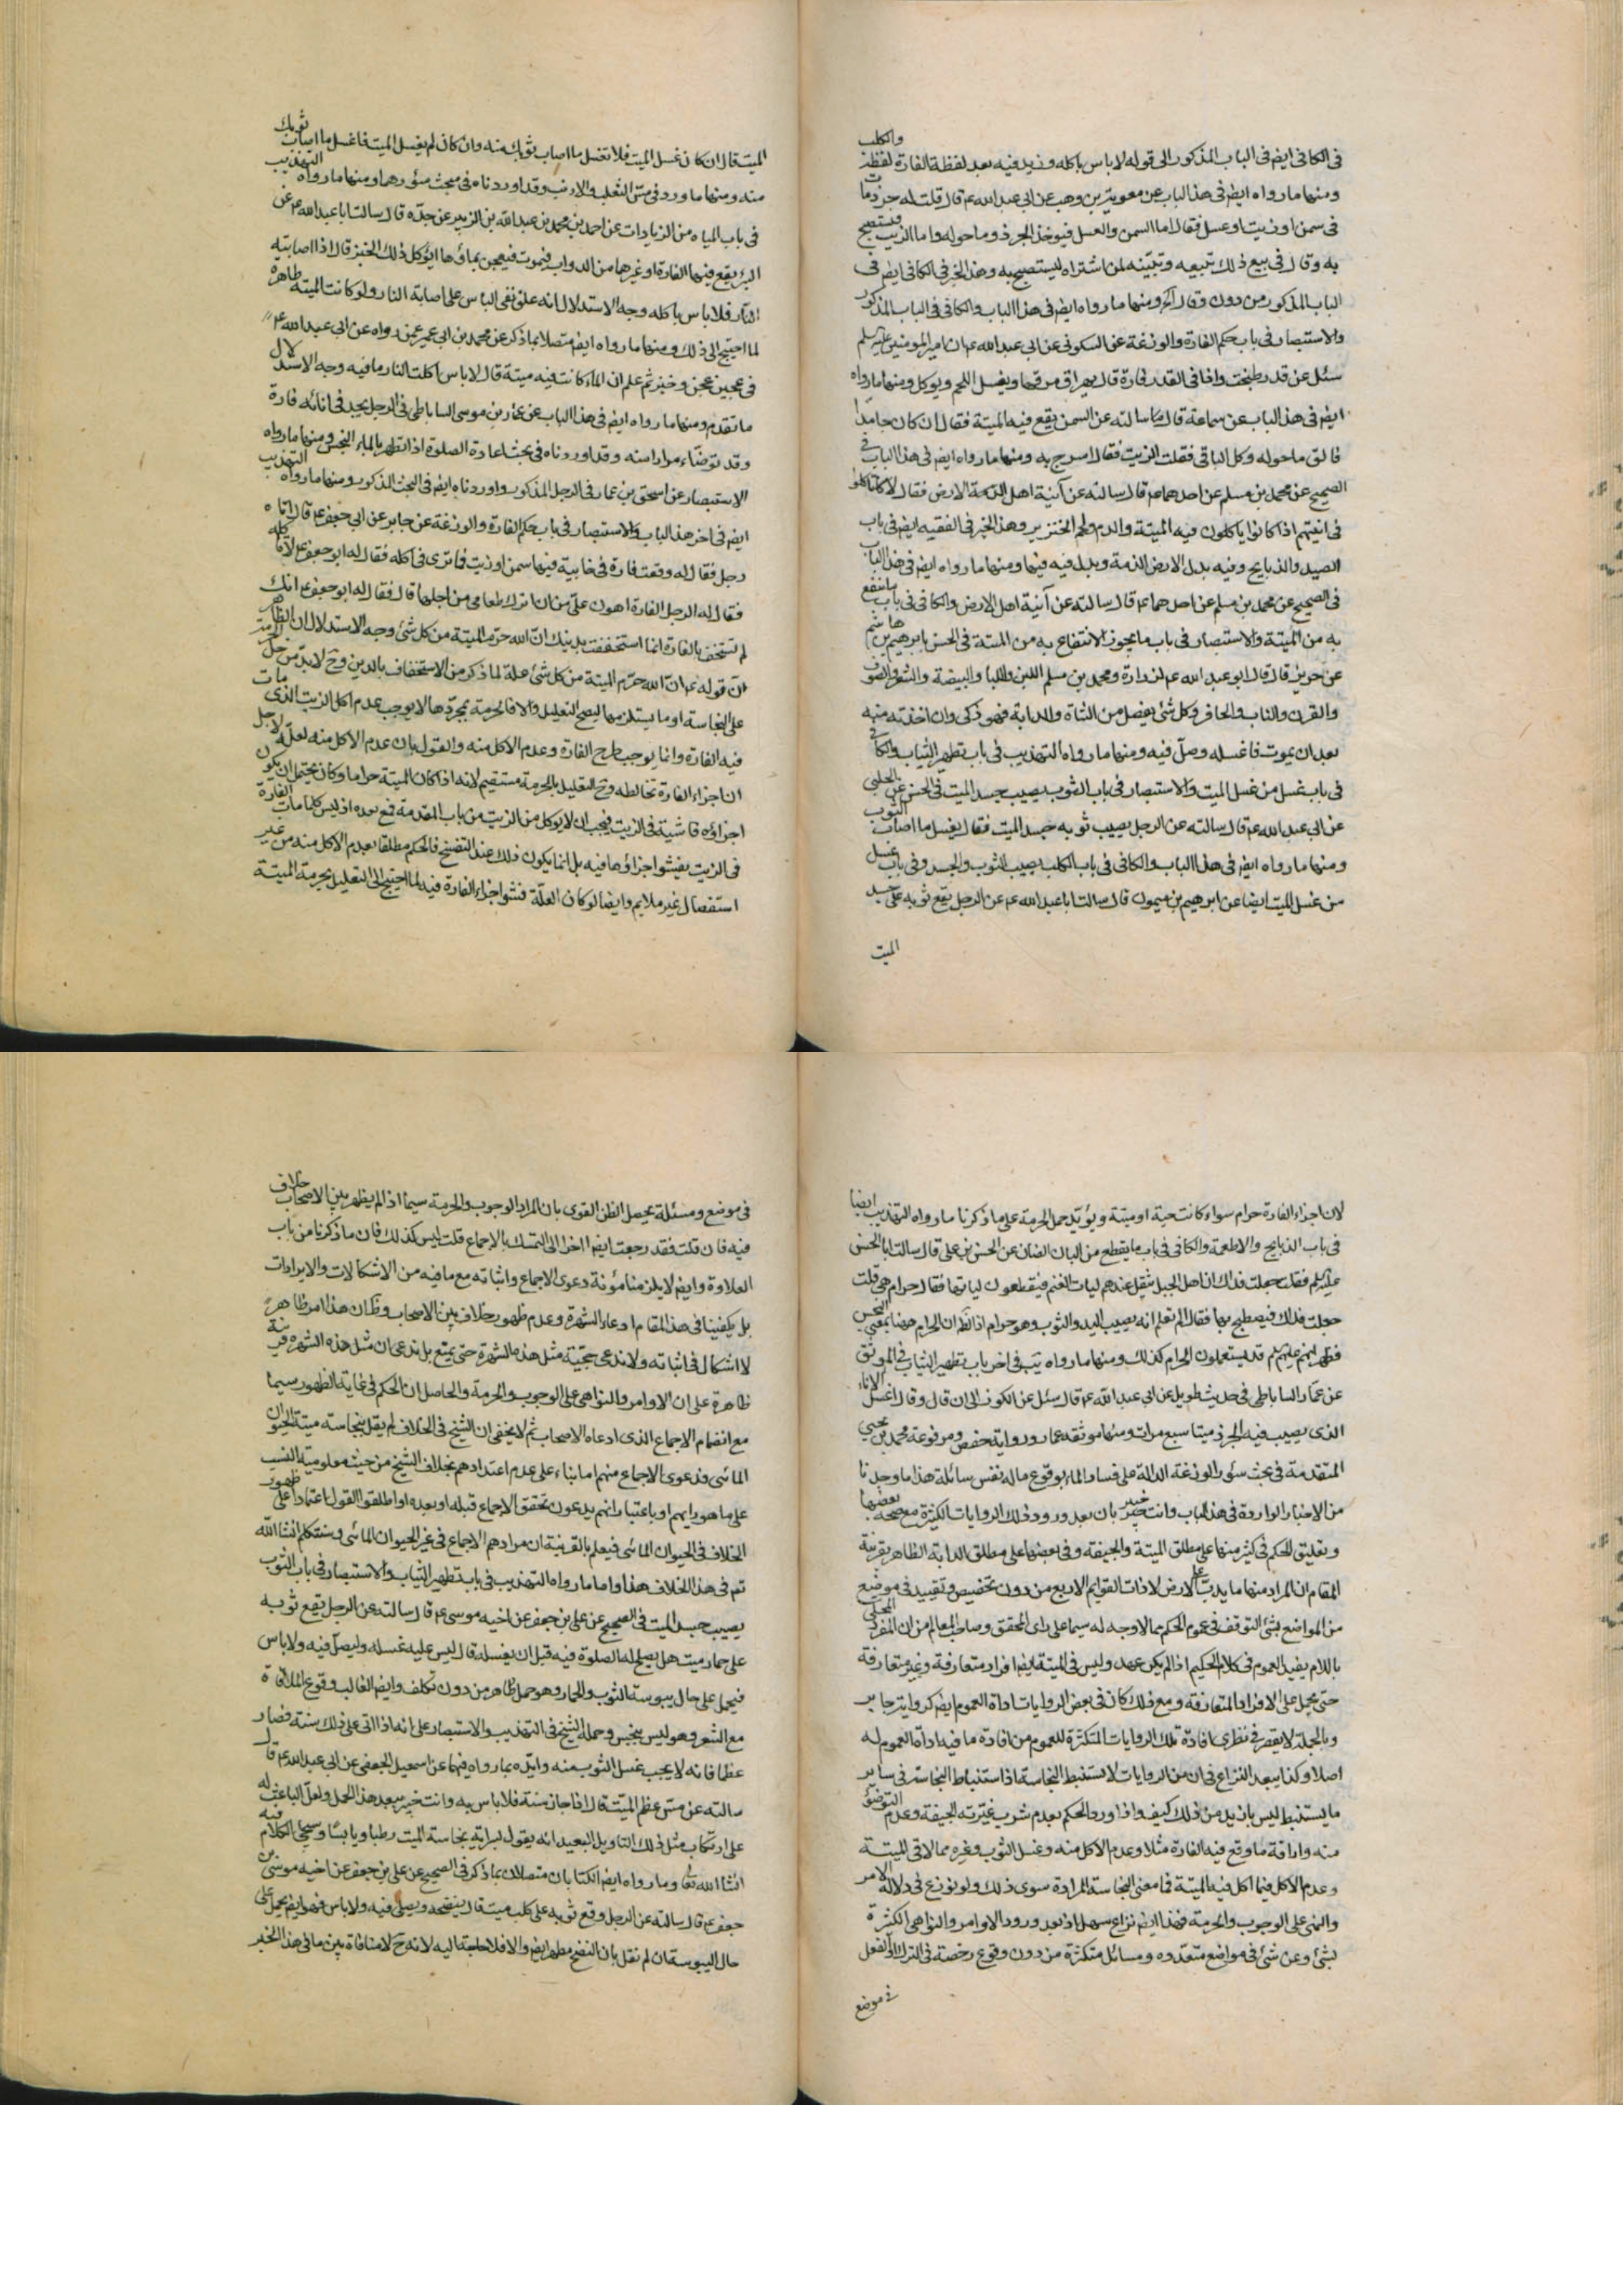 في الكافي ايضم في الباب المذكور الى قوله لا باس باكله وزيد فيه بعد لفظة الفارة لفظة والكلب
ومنها ما رواه ايضم في هذا الباب عن معوية بن وهب عن ابي عبد الله عم قال قلت له جرذ مات
في سمن او زيت او عسل فقال اما السمن والعسل فيؤخذ الجرذ وما حوله واما الزيت فيستصبح
به وقال في بيع ذلك تبيعه وتبينه لمن اشتراه ليستصبح به وهذا الخبر في الكافي ايضم في
الباب المذكور من دون وقال آلخ ومنها ما رواه ايضم في هذا الباب والكافي في الباب المذكور
والاستبصار في باب حكم الفارة والوزغة عن السكوني عن ابي عبد الله عم ان امير المؤمنين عليه سلم
سئل عن قدر طبخت واذا في القدر فارة قال يهراق مرقها ويغسل اللحم ويوكل ومنها ما رواه
ايضم في هذا الباب عن سماعة قال سالته عن السمن يقع فيه الميتة فقال ان كان جامدا
فالق ما حوله وكل الباقي فقلت الزيت فقال اسرج به ومنها ما رواه ايضم في هذا الباب في
الصحيح عن محمد بن مسلم عن احدهما عم قال سالته عن آنية اهل الذمة الارض فقال لا تاكلوا
في انيتهم اذا كانوا ياكلون فيه الميتة والدم ولحم الخنزير وهذا الخبر في الفقيه ايضم في باب
الصيد والذبايح وفيه بدل الارض الذمة وبدل فيه فيها ومنها ما رواه ايضم في هذا الباب
في الصحيح عن محمد بن مسلم عن احدهما عم قال سالته عن آنية اهل الارض والكافي في باب ما ينتفع
به من الميتة والاستبصار في باب ما يجوز الانتفاع به من الميتة في الحسن بابرهيم بن هاشم
عن حريز قال قال ابو عبد الله عم لزرارة ومحمد بن مسلم اللبن واللبا والبيضة والشعر والصوف
والقرن والناب والحافر وكل شئ يفصل من الشاة والدابة فهو ذكي وان اخذته منه
بعد ان يموت فاغسله وصل فيه ومنها ما رواه التهذيب في باب تطهير الثياب والكافي
في باب غسل من غسل الميت والاستبصار في باب الثوب يصيب جسد الميت في الحسن عن الحلبي
عن ابي عبد الله عم قال سالته عن الرجل يصيب ثوبه جسد الميت فقال يغسل ما اصاب الثوب
ومنها ما رواه ايضم في هذا الباب والكافي في باب الكلب يصيب الثوب والجسد وفي باب غسل
من غسل الميت ايضا عن ابرهيم بن ميمون قال سالت ابا عبد الله عم عن الرجل يقع ثوبه على جسد
الميت
الميت قال ان كان غسل الميت فلا تغسل ما اصاب ثوبك منه وان كان لم يغسل الميت فاغسل ما اصاب ثوبك
منه ومنها ما ورد في مس الثعلب والارنب وقد اوردناه في مبحث سؤرهما ومنها ما رواه التهذيب
في باب المياه من الزيادات عن احمد بن محمد بن عبد الله بن الزبير عن جده قال سالت ابا عبد الله عم عن
البئر يقع فيها الفارة او غيرها من الدواب فيموت فيعجن بماؤها ايؤكل ذلك الخبز قال اذا اصابته
النار فلا باس باكله وجه الاستدلال انه علق نفي الباس على اصابة النار ولو كانت الميتة طاهرة
لما احتيج الى ذلك ومنها ما رواه ايضم متصلا بما ذكر عن محمد بن ابي عمير عمن رواه عن ابي عبد الله عم
في عجين عجن وخبز ثم علم ان الماء كانت فيه ميتة قال لا باس اكلت النار ما فيه وجه الاستدلال
ما تقدم ومنها ما رواه ايضم في هذا الباب عن عمار بن موسى الساباطي في الرجل يجد في انائه فارة
وقد توضاء مرارا منه وقد اوردناه في بحث اعادة الصلوة اذا تطهر بالماء النجس ومنها ما رواه
الاستبصار عن اسحق بن عمار في الرجل المذكور واوردناه ايضم في البحث المذكور ومنها ما رواه التهذيب
ايضم في اخر هذا الباب والاستبصار في باب حكم الفارة والوزغة عن جابر عن ابي جعفر عم قال اتاه
رجل فقال له وقعت فارة في خابية فيها سمن او زيت فما ترى في اكله فقال له ابو جعفر عم لا تاكله
فقال له الرجل الفارة اهون علي من ان اترك طعامي من اجلها قال فقال له ابو جعفر عم انك
لم تستخف بالفارة انما استخففت بدينك ان الله حرم الميتة من كل شئ وجه الاستدلال ان الظاهر
ان قوله عم ان الله حرم الميتة من كل شئ علة لما ذكر من الاستخفاف بالدين وح لا بد من حمل الحرمة
على النجاسة او ما يستلزمها ليصح التعليل والا فالحرمة بمجردها لا يوجب عدم اكل الزيت الذي مات
فيه الفارة وانما يوجب طرح الفارة وعدم الاكل منه والقول بان عدم الاكل منه لعله لاجل
ان اجزاء الفارة تخالطه وح التعليل بالحرمة مستقيم لانه اذا كان الميتة حراما وكان يحتمل ان يكون
اجزاؤه فاشية في الزيت فيجب ان لا يوكل من الزيت من باب المقدمة فمع بعده اذ ليس كلما مات الفارة
في الزيت يفشوا اجزاؤها فيه بل انما يكون ذلك عند التفسخ فالحكم مطلقا بعدم الاكل منه من غير
استفصال غير ملايم وايضا لو كان العلة فشو اجزاء الفارة فيه لما احتيج الى التعليل بحرمة الميتة
لان اجزاء الفارة حرام سواء كانت حية او ميتة ويؤيد حمل الحرمة على ما ذكرنا ما رواه التهذيب ايضا
في باب الذبايح والاطعمة والكافي في باب ما يقطع من اليات الضان عن الحسن بن علي قال سالت ابا الحسن
عليه سلم فقلت جعلت فداك ان اهل الجبل تثقل عندهم اليات الغنم فيقطعون الياتها فقال حرام هي قلت
جعلت فداك فيصطبح بها فقال الم تعلم انه يصيب اليد والثوب وهو حرام اذ الظان الحرام ههنا بمعنى النجس
فظهر انهم عليهم سلم قد يستعملون الحرام كذلك ومنها ما رواه يب في اخر باب تطهير الثياب في الموثق
عن عمار الساباطي في حديث طويل عن ابي عبد الله عم قال سئل عن الكوز الى ان قال وقال اغسل الاناء
الذي يصيب فيه الجرذ ميتا سبع مرات ومنها موثقه عمار ورواية حفص ومرفوعة محمد بن يحيى
المتقدمة في بحث سؤر الوزغة الدالة على فساد الماء بوقوع ما له نفس سائلة هذا ما وجدنا
من الاخبار الواردة في هذا الباب وانت خبير بان بعد ورود ذلك الروايات الكثيرة مع صحة بعضها
وتعليق الحكم في كثير منها على مطلق الميتة والجيفة وفي بعضها على مطلق الدابة الظاهر بقرينة
المقام ان المراد منها ما يدب على الارض لا ذات القوايم الاربع من دون تخصيص وتقييد في موضع
من المواضع بشئ التوقف في عموم الحكم مما لا وجه له سيما على راي المحقق وصاحب المعالم من ان المفرد المحلى
باللام يفيد العموم في كلام الحكيم اذا لم يكن عهد وليس في الميتة ايضم افراد متعارفة وغير متعارفة
حتى يحمل على الافراد المتعارفة ومع ذلك كان في بعض الروايات اداة العموم ايضم كرواية جابر
وبالجملة لا يقصر في نظري افادة تلك الروايات المتكثرة للعموم من افادة ما فيه اداة العموم له
اصلا وكذا يبعد النزاع في ان من الروايات لا يستنبط النجاسة اذ استنباط النجاسة في ساير
ما يستنبط ليس بازيد من ذلك كيف واذا ورد الحكم بعدم شرب غيرته الجيفة وعدم التوضؤ
منه واراقة ما وقع فيه الفارة مثلا وعدم الاكل منه وغسل الثوب وغيره مما لاقى الميتة
وعدم الاكل فيما اكل فيه الميتة فما معنى النجاسة المرادة سوى ذلك ولو نوزع في دلالة الامر
والنهي على الوجوب والحرمة فهذا ايضم نزاع سهل اذ بعد ورود الاوامر والنواهي الكثيرة
بشئ وعن شئ في مواضع متعدده ومسائل متكثرة من دون وقوع رخصة في الترك او الفعل
في موضع
في موضع ومسئلة يحصل الظن القوي بان المراد الوجوب والحرمة سيما اذا لم يظهر بين الاصحاب خلاف
فيه فان قلت فقد رجعت ايضم اخرا الى التمسك بالاجماع قلت ليس كذلك فان ما ذكرنا من باب
العلاوة وايضم لا يلزمنا مؤنة دعوى الاجماع واثباته مع ما فيه من الاشكالات والايرادات
بل يكفينا في هذا المقام ادعاء الشهرة وعدم ظهور خلاف بين الاصحاب وظ ان هذا امر ظاهر
لا اشكال في اثباته ولا ندعي حجية مثل هذه الشهرة حتى يمنع بل ندعي ان مثل هذه الشهرة قرينة
ظاهرة على ان الاوامر والنواهي على الوجوب والحرمة والحاصل ان الحكم في غاية الظهور سيما
مع انضمام الاجماع الذي ادعاه الاصحاب ثم لا يخفى ان الشيخ في الخلاف لم يقل بنجاسته ميتة الحيوان
المائي فدعوى الاجماع منهم اما بناء على عدم اعتدادهم بخلاف الشيخ من حيث معلومية النسب
على ما هو رايهم او باعتبار انهم يدعون تحقق الاجماع قبله او بعده او اطلقوا القول اعتمادا على ظهور
الخلاف في الحيوان المائي فيعلم بالقرينة ان مرادهم الاجماع في غير الحيوان المائي وسنتكلم انشا الله
تع في هذا الخلاف هذا واما ما رواه التهذيب في باب تطهير الثياب والاستبصار في باب الثوب
يصيب جسد الميت في الصحيح عن علي بن جعفر عن اخيه موسى عم قال سالته عن الرجل يقع ثوبه
على حمار ميت هل يصلح له الصلوة فيه قبل ان يغسله قال ليس عليه غسله وليصل فيه ولا باس
فيحمل على حال يبوسة الثوب والحمار وهو حمل ظاهر من دون تكلف وايضم الغالب وقوع الملاقاة
مع الشعر وهو ليس بنجس وحمله الشيخ في التهذيب والاستبصار على انه اذا اتى على ذلك سنة فصار
عظما فانه لا يجب غسل الثوب منه وايده بما رواه فيهما عن اسمعيل الجعفي عن ابي عبد الله عم قال
سالته عن مس عظم الميت قال اذا جاز سنة فلا باس به وانت خبير ببعد هذا الحمل ولعل الباعث له
على ارتكاب مثل ذلك التاويل البعيد انه يقول لسراية نجاسة الميت رطبا ويابسا وسيجئ الكلام فيه
انشا الله تعا وما رواه ايضم الكتابان متصلان بما ذكر في الصحيح عن علي بن جعفر عن اخيه موسى بن
جعفر عم قال سالته عن الرجل وقع ثوبه على كلب ميت قال ينضحه ويصلي فيه ولا باس فهو ايضم يحمل على
حال اليبوسة ان لم نقل بان النضح مطهر ايضم والا فلا حاجة اليه لانه ح لا منافاة بين ما في هذا الخبر